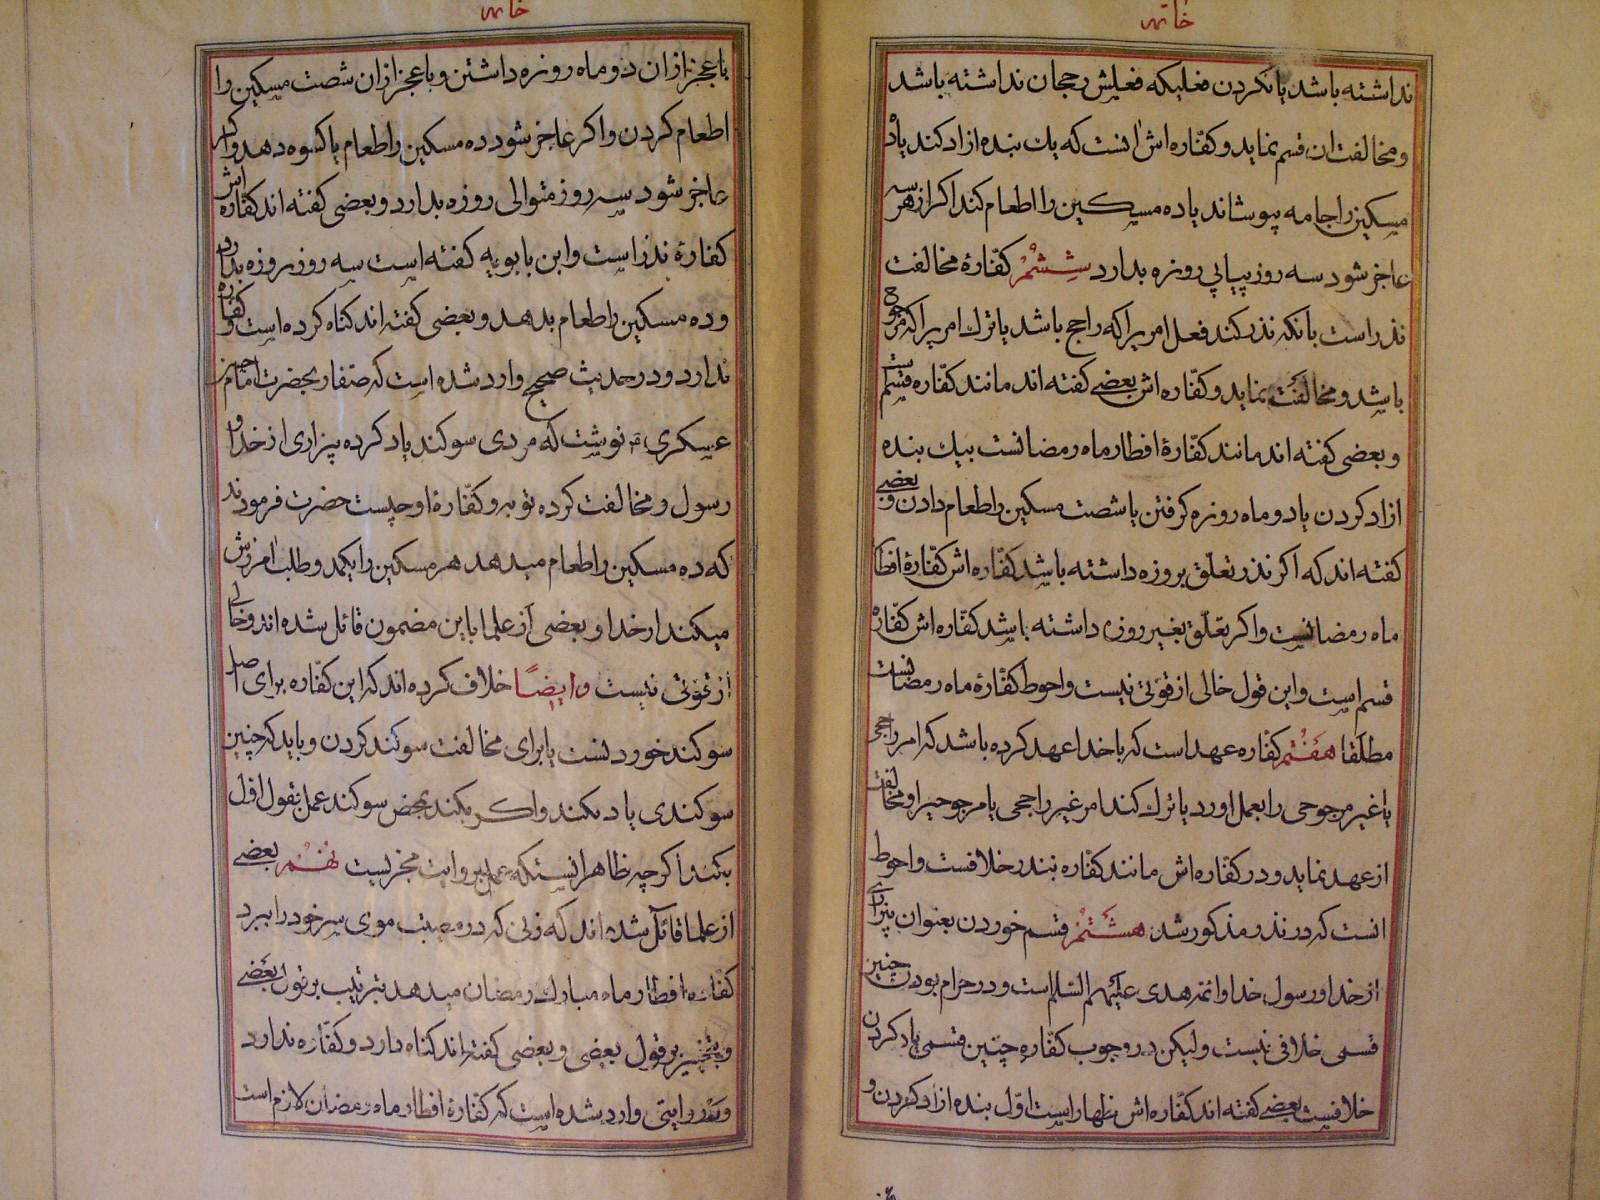 خاتمه
نداشته باشد یا نکردن فعلیکه فعلیش رجحان نداشته باشد
و مخالفت ان قسم نماید و کفّاره اش انست که یك بنده ازاد کند یا ده
مسکین را جامه بپوشاند یا ده مسکین را اطعام کند اکر از هر سه
عاجز شود سه روز پیاپی روزه بدارد ششم کفّارهٔ مخالفت
نذر است بانکه نذر کند فعل امریرا که راجح باشد یا ترك امریرا که مرجوح
باشد و مخالفت نماید و کفّاره اش بعضی کفته اند مانند کفّاره قسم است
و بعضی کفته اند مانند کفّارهٔ افطار ماه رمضانست بیك بنده
ازاد کردن یا دو ماه روزه کرفتن یا شصت مسکین را طعام دادن و بعضی
کفته اند که اکر نذر تعلّق بروزه داشته باشد کفّاره اش کفّارهٔ افطار
ماه رمضانست و اکر تعلّق بغیر روزه داشته باشد کفّاره اش کفّاره
قسم است و این قول خالی از قوّتی نیست و احوط کفّارهٔ ماه رمضانست
مطلقا هفتم کفّاره عهد است که با خدا عهد کرده باشد که امر راجحی
یا غیر مرجوحی را بعمل اورد یا ترك کند امر غیر راجحی یا مرجوحیرا و مخالفت
از عهد نماید و در کفّاره اش مانند کفّاره نذر خلافست و احوط
انست که در نذر مذکور شد هشتم قسم خوردن بعنوان بیزاری
از خدا و رسول خدا و ائمه هدی علیهم السّلم است و در حرام بودن چنین
قسمی خلافی نیست و لیکن در وجوب کفّاره چنین قسمی یاد کردن
خلافست بعضی کفته اند کفّاره اش ظهار است اوّل بنده ازاد کردن و
خاتمه
با عجز از ان دو ماه روزه داشتن و با عجز از ان شصت مسکین را
اطعام کردن و اکر عاجز شود ده مسکین را طعام یا کسوه دهد و اکر
عاجز شود سه روز متوالی روزه بدارد و بعضی کفته اند کفّاره اش
کفّارهٔ نذر است و ابن بابویه کفته است سه روز روزه بدارد
و ده مسکین را طعام بدهد و بعضی کفته اند کناه کرده است و کفّاره
ندارد و در حدیث صحیح وارد شده است که صفّار بحضرت امام حسن
عسکری نوشت که مردی سوکند یاد کرده بیزاری از خدا و
رسول و مخالفت کرده توبه و کفّارهٔ او چیست حضرت فرمودند
که ده مسکین را طعام میدهد هر مسکین را یکمد و طلب امرزش
میکند از خدا و بعضی از علما باین مضمون قائل شده اند و خالی
از قوّتی نیست و ایضًا خلاف کرده اند که این کفّاره برای اصل
سوکند خوردنست یا برای مخالفت سوکند کردن و باید که چنین
سوکندی یاد نکند و اکر بکند بمحض سوکند عمل بقول اول
بکند اکرچه ظاهر انستکه عمل بروایت مجزیست نهم بعضی
از علما قائل شده اند که زنی که در مصیبت موی سر خود را ببرد
کفّاره افطار ماه مبارك رمضان میدهد بترتیب بر قول بعضی
و بتخییر بر قول بعضی و بعضی کفته اند کناه دارد و کفّاره ندارد
و در روایتی وارد شده است که کفّارهٔ افطار ماه رمضان لازم است